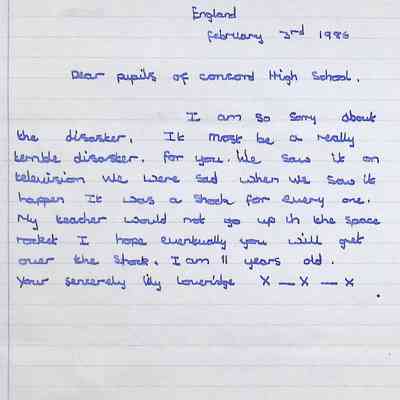 England
february 3rd 1986
Dear pupils of concord High School.
I am so sorry about
the disaster. It most be a really
terrible disaster. for you. We saw it on
television We were sad when we saw it
happen It was a shock for every one.
My teacher would not go up in the space
rocket I hope eventually you will get
over the shock. I am 11 years old.
Your sencerely lily Loweridge X — X — X